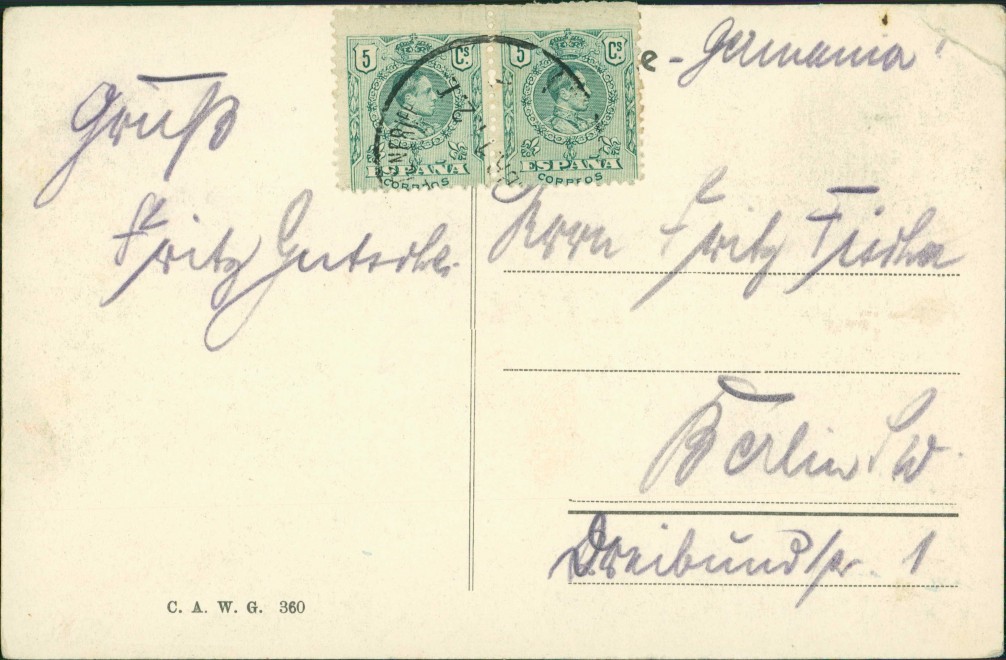 5 Cs. 5 Cs
ESPAÑA ESPAÑA
CORREOS CORREOS
e - Germania!
Gruß
Fritz
Herrn Fritz
Berlin SW.
Dreibundstr. 1
C. A. W. G. 360